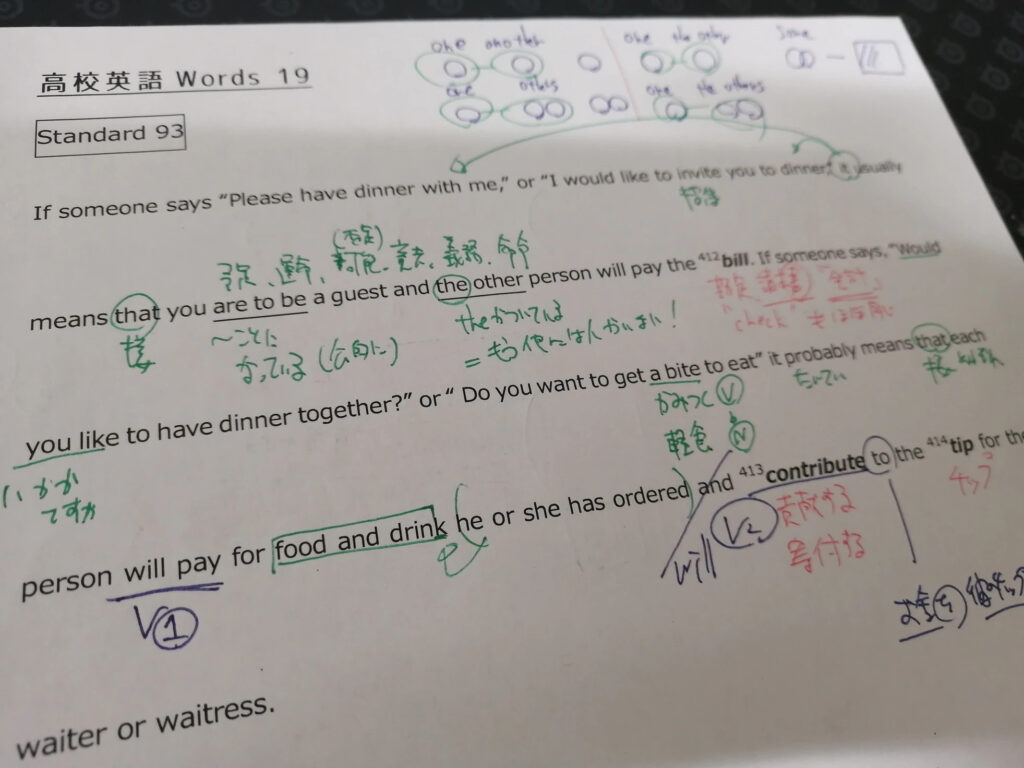 one another one the other Some
高校英語 Words 19
one others one the others
Standard 93
If someone says “Please have dinner with me,” or “I would like to invite you to dinner,” it usually
招待
(否定)
予定、運命、可能、意志、義務、命令
means that you are to be a guest and the other person will pay the 412 bill. If someone says, “Would
接 〜ことに theがついている
なっている(公的に) =もう他には人がいない!
“check”もほぼ同じ
you like to have dinner together?” or “ Do you want to get a bite to eat” it probably means that each
いかが かみつく V たいてい 接
ですか 軽食 N
person will pay for food and drink he or she has ordered and 413 contribute to the 414 tip for the
V1 will V2 貢献する チップ
寄付する
waiter or waitress.